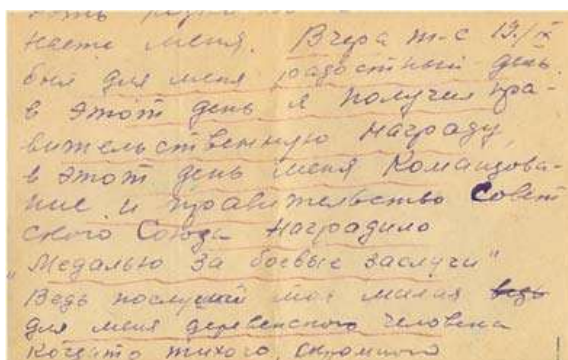 наете меня. Вчера т-е 19/IX
был для меня радостный день.
в этот день я получил пра-
вительственную награду,
в этот день меня Командова-
ние и правительство Совет
ского Союза наградило
"Медалью За боевые заслуги"
Ведь послушай моя милая ведь
для меня деревенского человека
когдато тихого, скромного